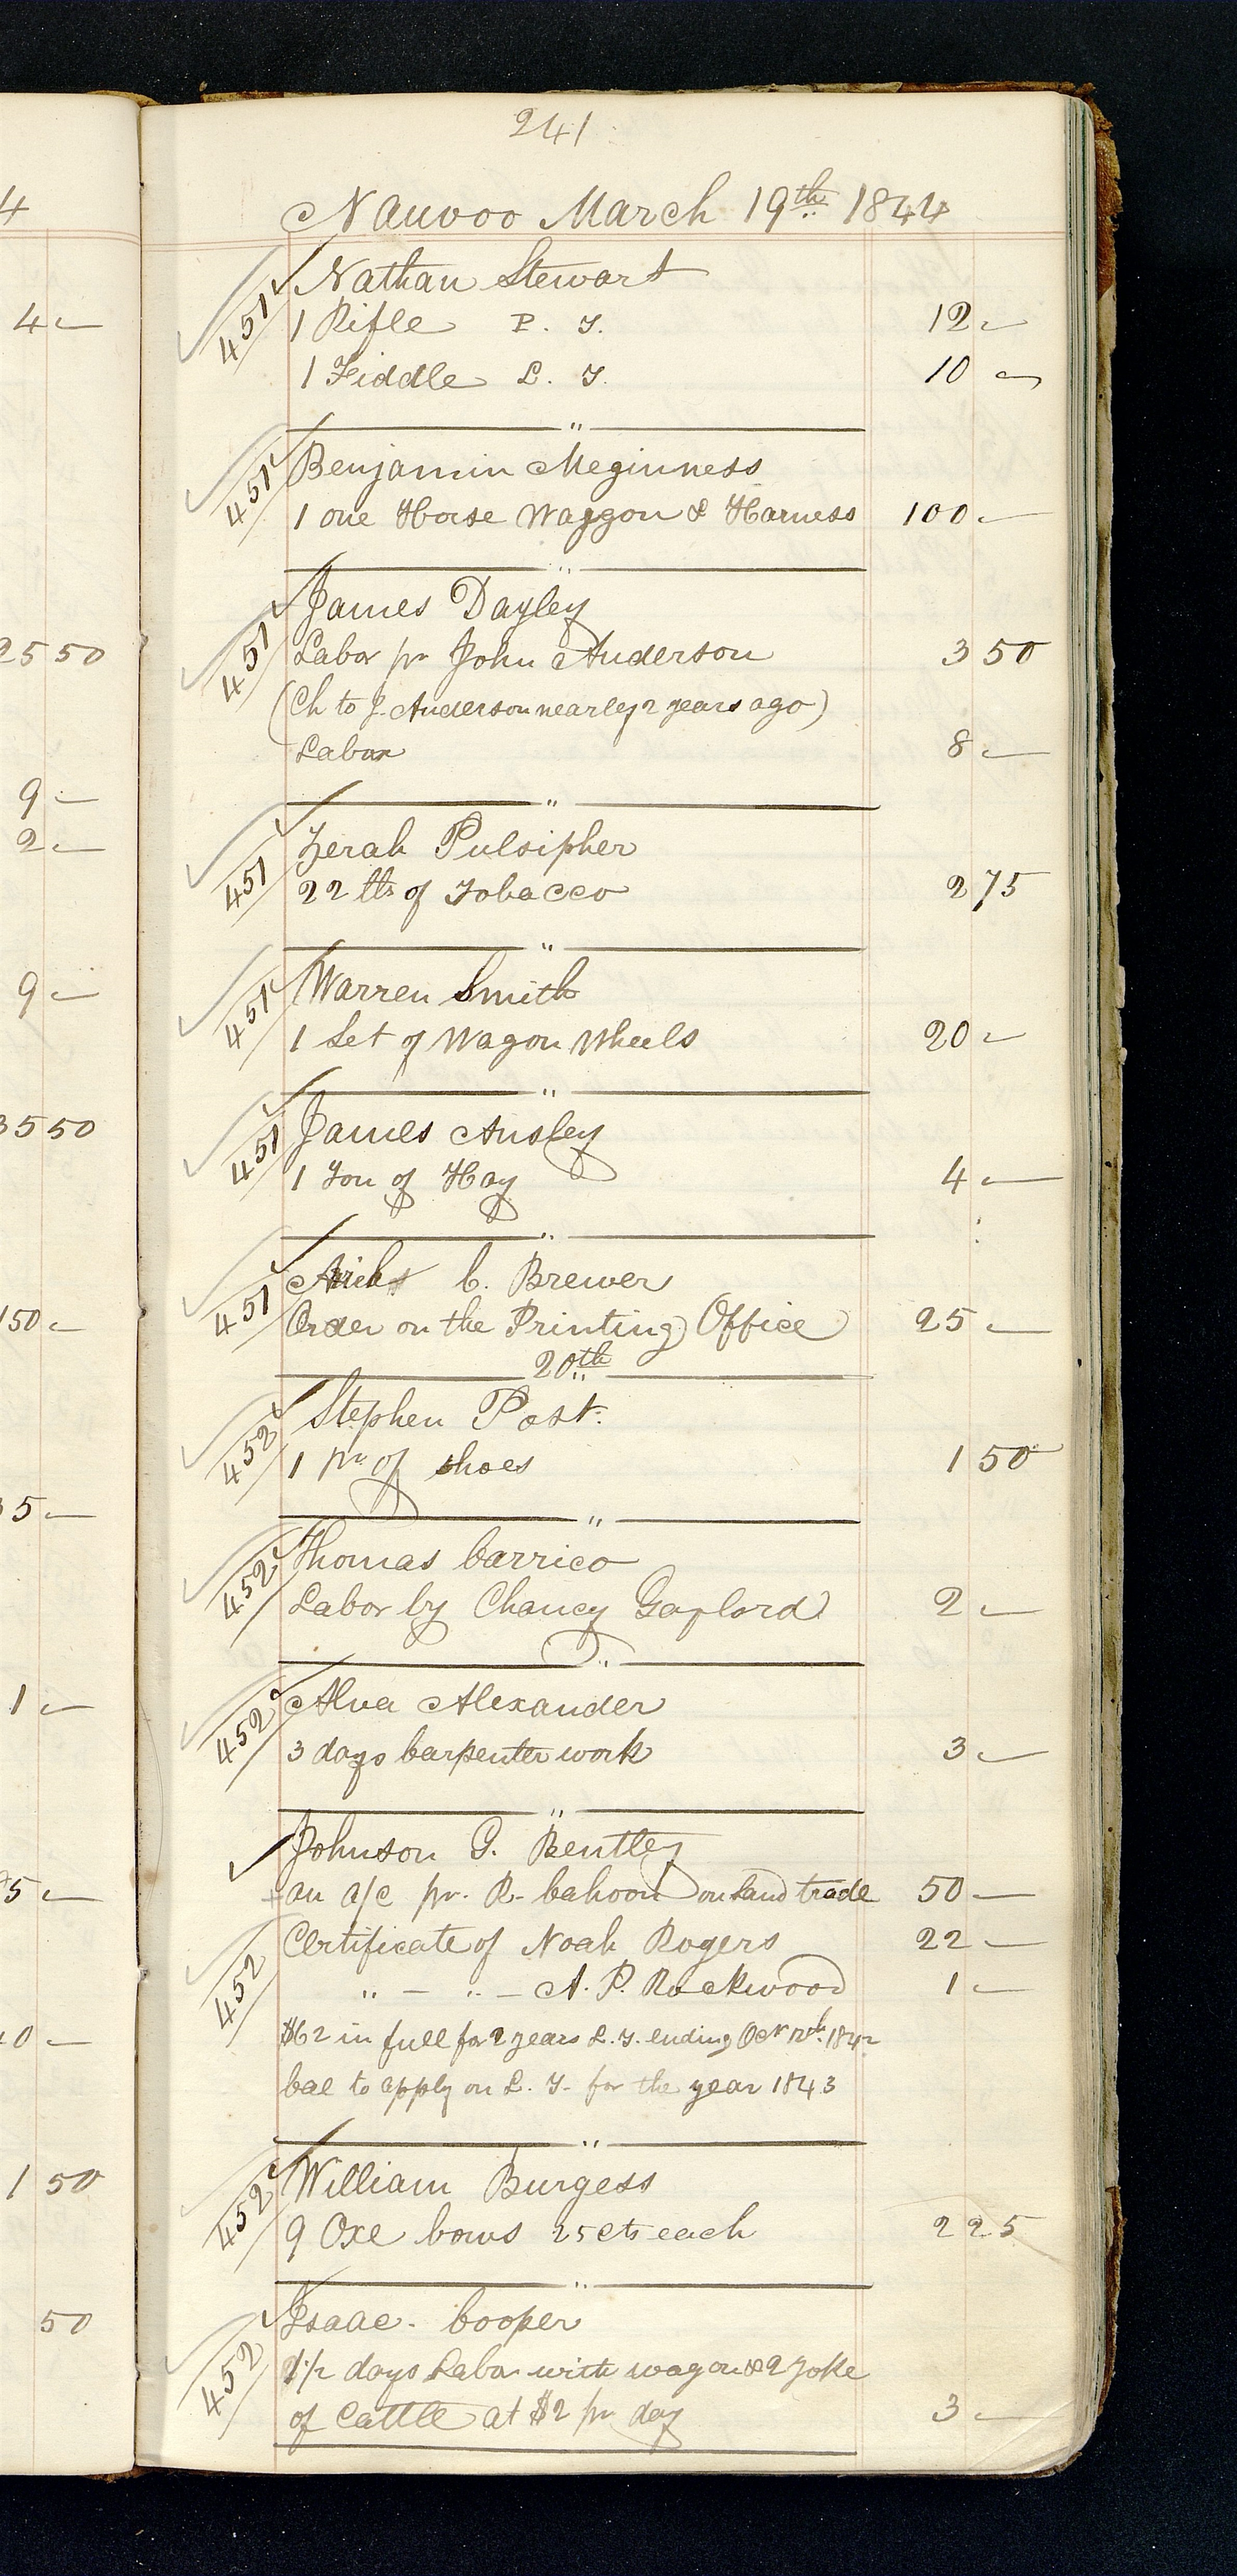 241
Nauvoo March 19th 1844
4
451 Nathan Stewart
1 Rifle P. T. 12 —
4 —
1 Fiddle L. T. 10 —
"
451 Benjamin Meginness
1 one Horse Waggon & Harness 100 —
"
451 James Dayley
Labor pr John Anderson 3 50
25 50
(Ch to J. Anderson nearley 2 years ago)
Labor 8 —
9 —
"
2 —
451 Zerah Pulsipher
22 lbs of Tobacco 2 75
"
451 Warren Smith
9 —
1 Set of Wagon Wheels 20 —
"
451 James Ansley
35 50
1 Ton of Hay 4 —
"
451 C. Brewer
Order on the Printing Office 25 —
150 —
20th
452 Stephen Post.
1 pr of shoes 1 50
5 —
"
452 Thomas Carrico
Labor by Chancy Gaylord 2 —
"
452 Alva Alexander
1 —
3 days Carpenter work 3 —
"
Johnson G. Bentley
an a/c pr. R- Cahoon on Land trade 50 —
5 —
452 Certificate of Noah Rogers 22 —
" — " — A. P. Rockwood 1 —
$62 in full for 2 years L. T. ending Oct 1842
0 —
bal to apply on L. T. for the year 1843
"
452 William Burgess
1 50
9 Oxe bows 25 cts each 2 25
"
452 Isaac Cooper
50
1 1/2 days Labor with wagon & 2 Yoke
of Cattle at $2 pr day 3 —